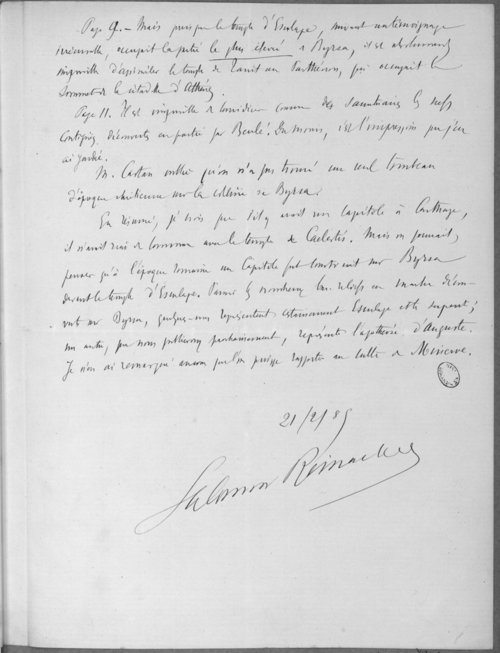 Page 9. — Mais puisque le temple d'Esculape, suivant un témoignage
irrécusable, occupait la partie la plus élevée de Byrsa, il est absolument
impossible d'assimiler le temple de Tanit au Parthénon, qui occupait le
sommet de la citadelle d'Athènes.
Page 11. Il est impossible de considérer comme des sanctuaires les nefs
contiguës découvertes en partie par Beulé. Du moins, c'est l'impression que j'en
ai gardée.
M. Castan oublie qu'on n'a pas trouvé un seul tombeau
d'époque chrétienne sur la colline de Byrsa.
En résumé, je crois que s'il y avait un Capitole à Carthage,
il n'avait rien de commun avec le temple de Caelestis. Mais on pourrait
penser qu'à l'époque romaine un Capitole fut construit sur Byrsa
devant le temple d'Esculape. Parmi les nombreux bas-reliefs en marbre décou-
verts sur Byrsa, quelques-uns représentent certainement Esculape et le serpent;
un autre, que nous publierons prochainement, représente l'apothéose d'Auguste.
Je n'en ai remarqué aucun que l'on puisse rapporter au culte de Minerve.
21/2/85
Salomon Reinach